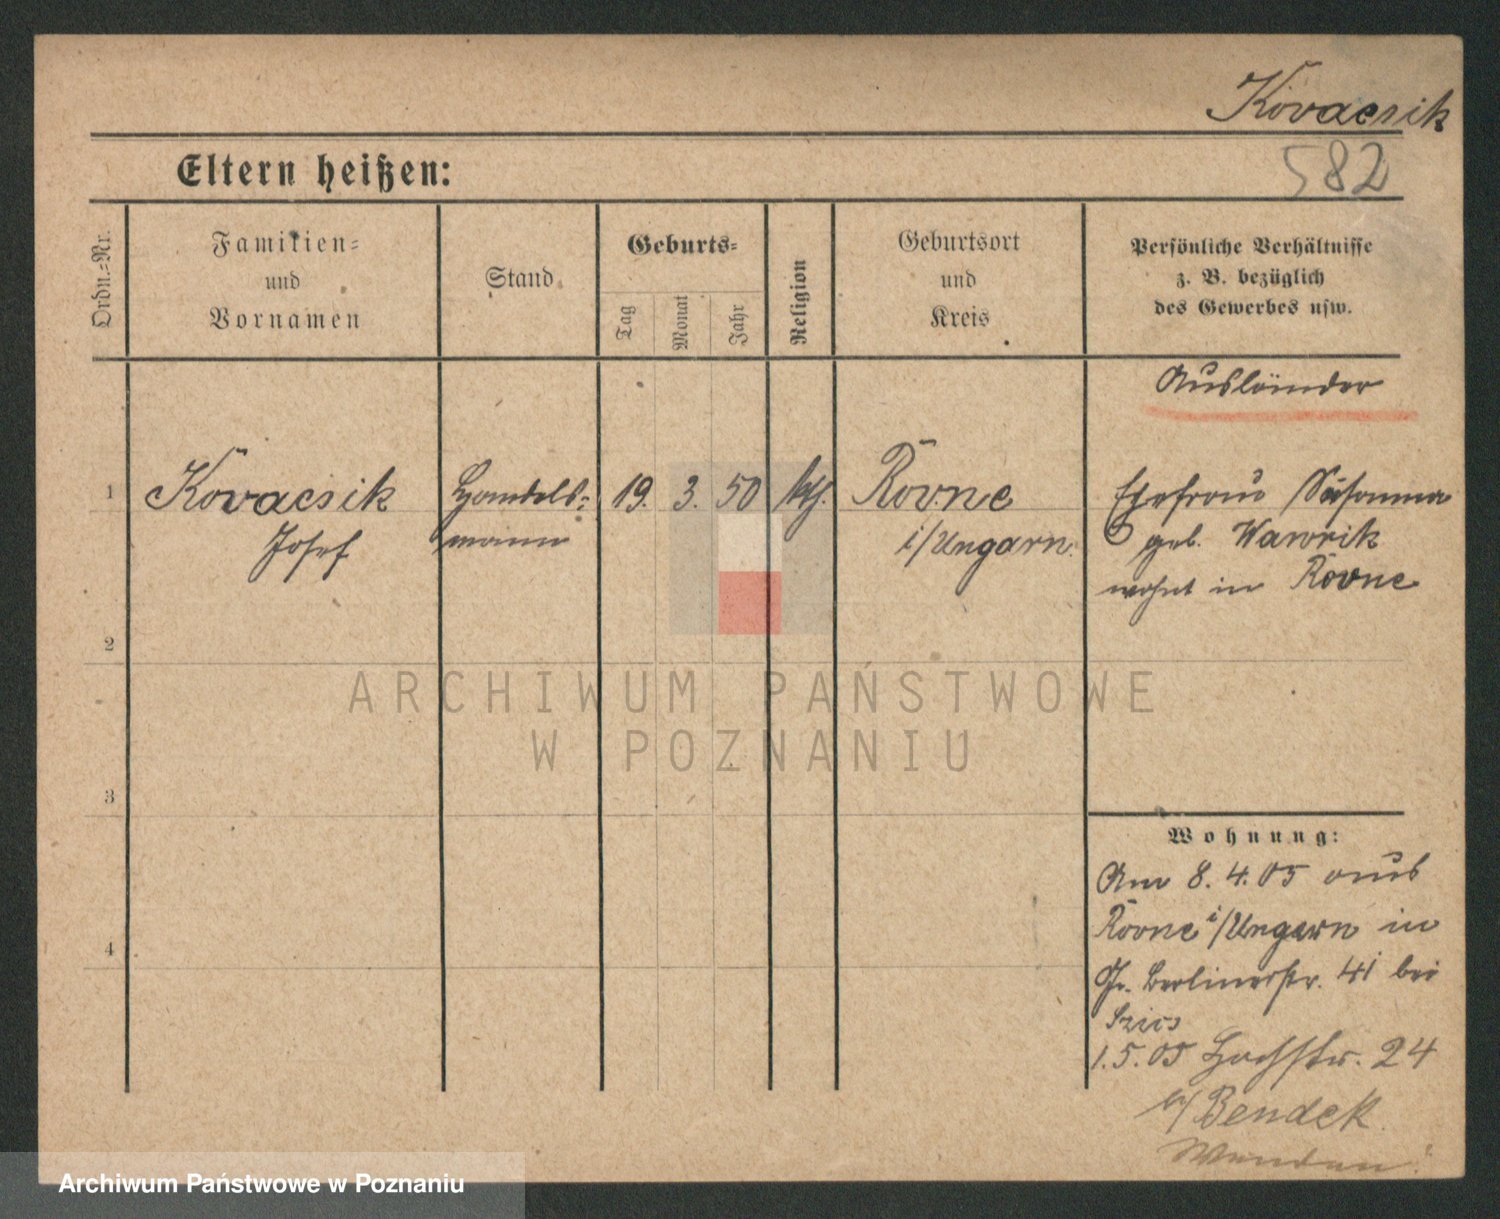 Kovacsik
582
Eltern heißen:
Ordn.-Nr.
Familien-
und
Vornamen
Stand
Geburts-
Tag
Monat
Jahr
Religion
Geburtsort
und
Kreis
Persönliche Verhältnisse
z. B. bezüglich
des Gewerbes usw.
Ausländer
1
Kovacsik
Josef
Handels-
mann
19. 3. 50
kth.
Rovne
i/Ungarn.
Ehefrau Susanna
geb. Wawrik
wohnt in Rovne
2
3
4
Wohnung:
Am 8. 4. 05 aus
Rovne i/Ungarn in
Gr. Berlinerstr. 41 bei
1. 5. 05 Hochstr. 24
b/ Bendek.
Wenden!
ARCHIWUM PAŃSTWOWE
W POZNANIU
Archiwum Państwowe w Poznaniu